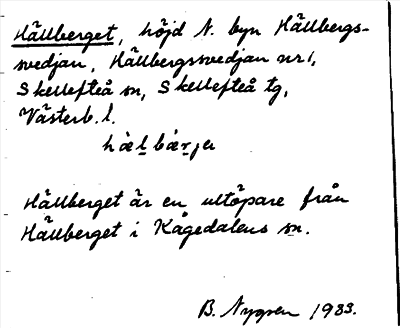 Hällberget, höjd N. byn Hällbergs-
svedjan, Hällbergssvedjan nr 1,
Skellefteå sn, Skellefteå tg,
Västerb. l.
Hällberget är en utlöpare från
Hällberget i Kågedalens sn.
B. Nygren 1983.